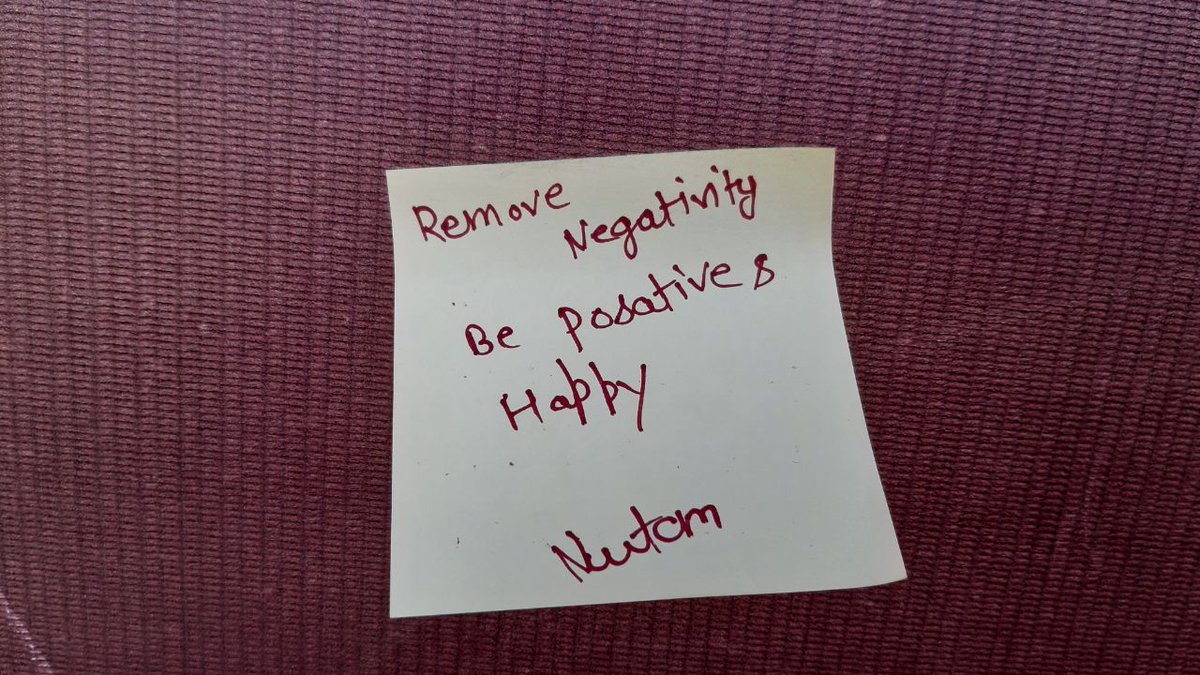 Remove
Negativity
Be posative &
Happy